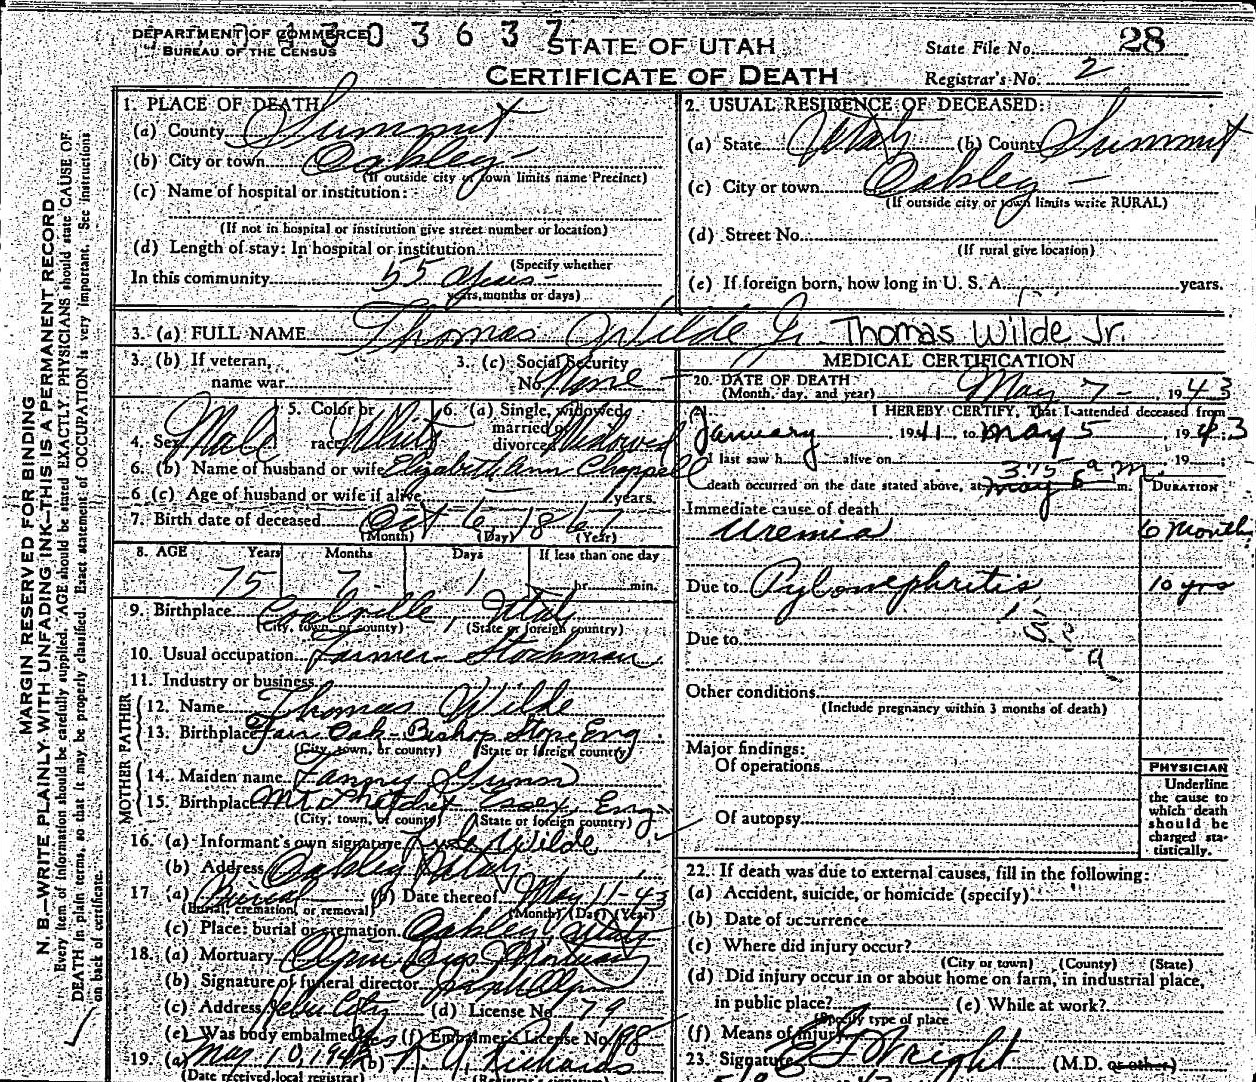 DEPARTMENT OF COMMERCE
BUREAU OF THE CENSUS
1303637
STATE OF UTAH
CERTIFICATE OF DEATH
State File No. 28
Registrar's No. 2
1. PLACE OF DEATH
(a) County Summit
(b) City or town Oakley
(If outside city or town limits name Precinct)
(c) Name of hospital or institution:
(If not in hospital or institution give street number or location)
(d) Length of stay: In hospital or institution
(Specify whether
In this community 55 years
years, months or days)
2. USUAL RESIDENCE OF DECEASED:
(a) State Utah (b) County Summit
(c) City or town Oakley
(If outside city or town limits write RURAL)
(d) Street No.
(If rural give location)
(e) If foreign born, how long in U. S. A. years.
3. (a) FULL NAME Thomas Wilde Jr. Thomas Wilde Jr.
3. (b) If veteran, name war
3. (c) Social Security No. None
4. Sex Male
5. Color or race White
6. (a) Single, widowed, married or divorced Widowed
6. (b) Name of husband or wife Elizabeth Ann Chappell
6. (c) Age of husband or wife if alive years.
7. Birth date of deceased Oct 6, 1867
(Month) (Day) (Year)
8. AGE Years Months Days If less than one day
75 7 1 hr. min.
9. Birthplace Coalville, Utah
(City, town, or county) (State or foreign country)
10. Usual occupation Farmer-Stockman
11. Industry or business
FATHER
12. Name Thomas Wilde
13. Birthplace Fair Oak-Bishop Stope Eng.
(City, town, or county) (State or foreign country)
MOTHER
14. Maiden name Fanny Gunn
15. Birthplace Essex, Eng.
(City, town, or county) (State or foreign country)
16. (a) Informant's own signature Wilde
(b) Address Oakley Utah
17. (a) Burial (b) Date thereof May 11-43
(Burial, cremation, or removal) (Month) (Day) (Year)
(c) Place: burial or cremation Oakley Utah
18. (a) Mortuary Olpin Bros Mortuary
(b) Signature of funeral director
(c) Address Heber City (d) License No. 79
(e) Was body embalmed Yes (f) Embalmer's License No. 198
19. (a) May 10, 194 (b) Richards
(Date received local registrar) (Registrar's signature)
MEDICAL CERTIFICATION
20. DATE OF DEATH
(Month, day, and year) May 7 - , 1943
21. I HEREBY CERTIFY, That I attended deceased from
January , 1941, to May 5 , 1943
I last saw h alive on , 19
death occurred on the date stated above, at 375 a m. m.
May 6
DURATION
Immediate cause of death
Uremia 6 Months
Due to Pylonephritis 10 yrs
132a
Due to
Other conditions
(Include pregnancy within 3 months of death)
Major findings:
Of operations
Of autopsy
PHYSICIAN
Underline
the cause to
which death
should be
charged sta-
tistically.
22. If death was due to external causes, fill in the following:
(a) Accident, suicide, or homicide (specify)
(b) Date of occurrence
(c) Where did injury occur?
(City or town) (County) (State)
(d) Did injury occur in or about home on farm, in industrial place,
in public place? (e) While at work?
(Specify type of place
(f) Means of injury
23. Signature Wright (M.D. or other)
MARGIN RESERVED FOR BINDING
N. B.—WRITE PLAINLY WITH UNFADING INK—THIS IS A PERMANENT RECORD
Every item of information should be carefully supplied. AGE should be stated EXACTLY. PHYSICIANS should state CAUSE OF
DEATH in plain terms, so that it may be properly classified. Exact statement of OCCUPATION is very important. See instructions
on back of certificate.